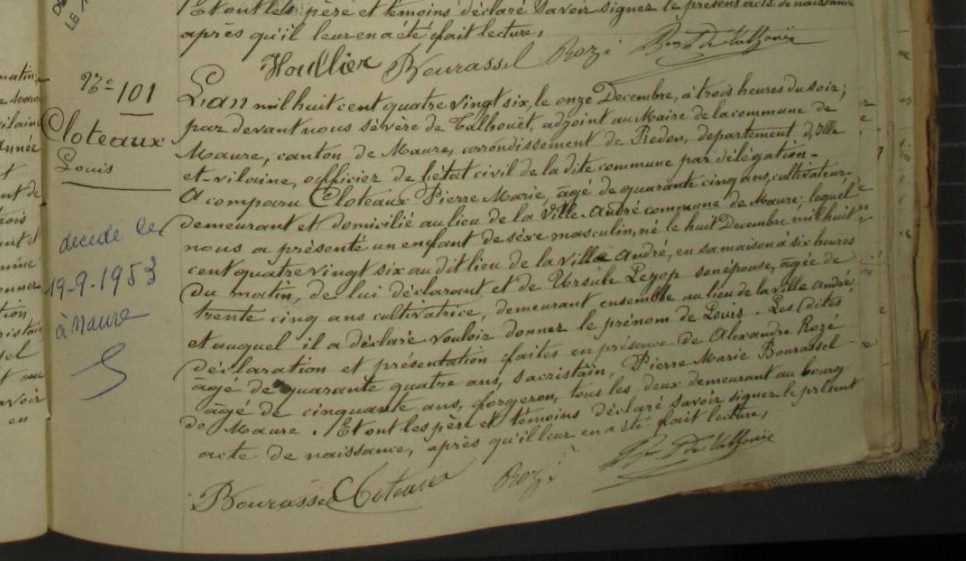 Et ont les père et témoins déclaré savoir signer le présent acte de naissance
après qu'il leur en a été fait lecture,
Houllier Bourassel Rozé Bon De Talhouët
No 101
Cloteaux
Louis
décédé le
19-9-1953
à Maure
L'an mil huit cent quatre vingt six, le onze Décembre, à trois heures du soir;
par devant nous sévère de Talhouët, adjoint au Maire de la commune de
Maure, canton de Maure, arrondissement de Redon, département d'Ille
et-vilaine, officier de l'état civil de la dite commune par délégation -
A comparu Cloteaux Pierre Marie, âgé de quarante cinq ans, cultivateur
demeurant et domicilié au lieu de la Ville André commune de Maure; lequel
nous a présenté un enfant de sèxe masculin, né le huit Décembre mil huit
cent quatre vingt six au dit lieu de la ville André, en sa maison à six heures
du matin, de lui déclarant et de Ursule son épouse, âgée de
trente cinq ans cultivatrice, demeurant ensemble au lieu de la ville André
et auquel il a déclaré vouloir donner le prénom de Louis. Les dites
déclaration et présentation faites en présence de Alexandre Rozé
âgé de quarante quatre ans, sacristain, Pierre Marie Bourassel
âgé de cinquante ans, forgeron, tous les deux demeurant au bourg
de Maure. Et ont les père et témoins déclaré savoir signer le présent
acte de naissance, après qu'il leur en a été fait lecture,
Bourassel Cloteaux Rozé Bon De Talhouët